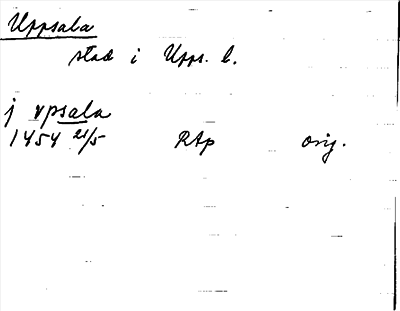 Uppsala
stad i Upps. l.
j vpsala
1454 21/5 RAp orig.